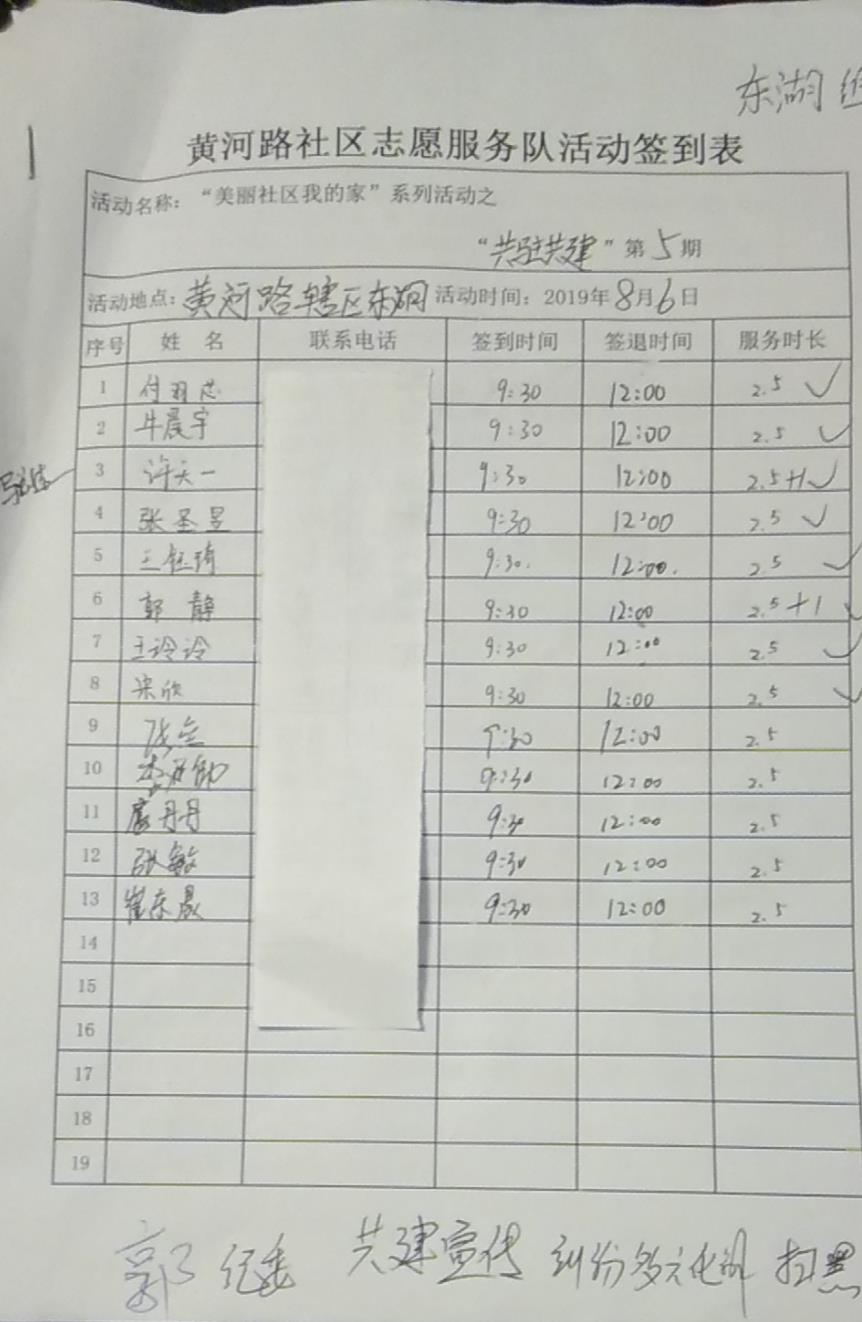 东湖
黄河路社区志愿服务队活动签到表
活动名称：“美丽社区我的家”系列活动之
“共驻共建”第5期
活动地点：黄河路辖区东湖 活动时间：2019年8月6日
序号 姓 名 联系电话 签到时间 签退时间 服务时长
1 付羽芯 9:30 12:00 2.5 ✓
2 牛晨宇 9:30 12:00 2.5 ✓
3 许天一 9:30 12:00 2.5+1 ✓
4 张圣昱 9:30 12:00 2.5 ✓
5 王钰琦 9:30. 12:00. 2.5 ✓
6 郭 静 9:30 12:00 2.5+1 ✓
7 王玲玲 9:30 12:00 2.5 ✓
8 宋欣 9:30 12:00 2.5 ✓
9 9:30 12:00 2.5
10 9:30 12:00 2.5
11 丹丹 9:30 12:00 2.5
12 张敏 9:30 12:00 2.5
13 崔东晟 9:30 12:00 2.5
14
15
16
17
18
19
郭 纪委 共建宣传 纠纷多元化解 扫黑